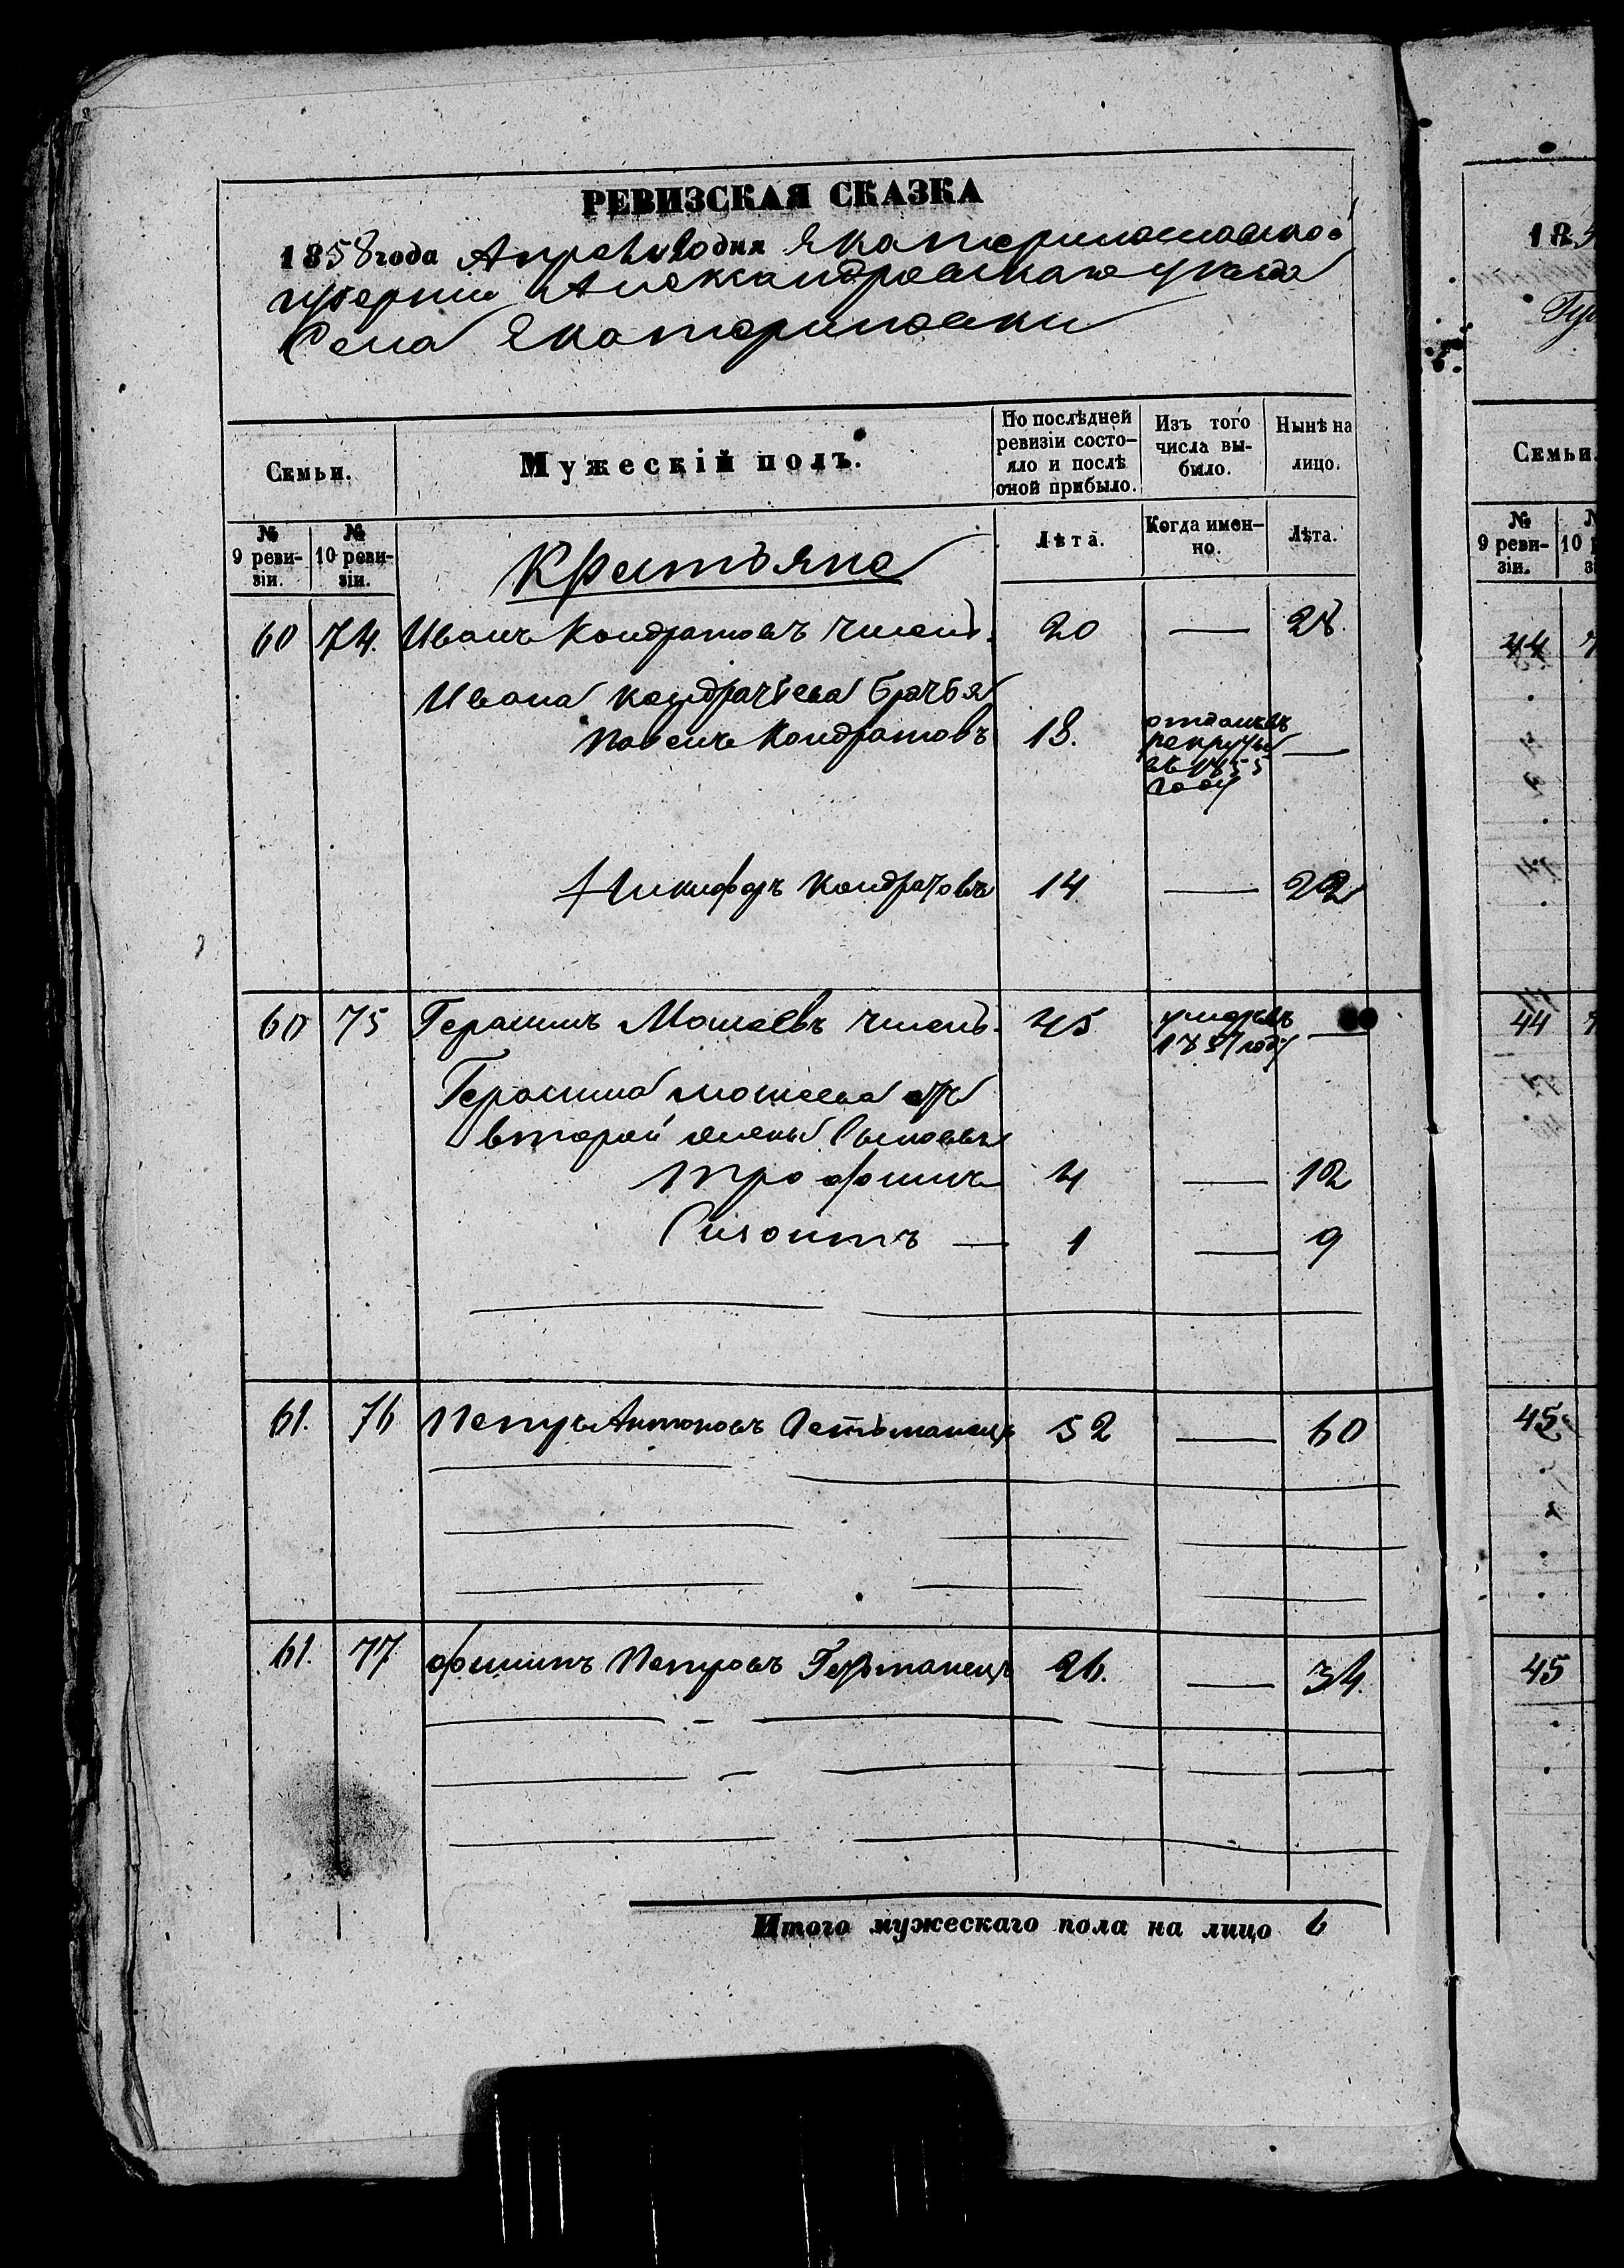 РЕВИЗСКАЯ СКАЗКА
1858 года Апреля 20 дня Екатеринославской
губернии Александровскаго уезда
Села Екатериновки
Семьи.
Мужескій полъ.
По послѣдней ревизіи состо-
яло и послѣ
оной прибыло.
Изъ того
числа вы-
было.
Нынѣ на
лицо.
№
9 реви-
зіи.
№
10 реви-
зіи.
Крестьяне
Лѣта.
Когда имен-
но.
Лѣта.
60 74. Иванъ Кондратовъ 20 — 28.
Ивана Кондратьева братья
Павелъ Кондратовъ 18. отданъ въ
рекруты
въ 1855
году —
Никифоръ Кондратовъ 14 — 22
60 75 Герасимъ Мосеевъ 45 умеръ въ
1857 году —
Герасима Мосеева отъ
второй жены Сыновья
Трофимъ 4 — 12
Сизонтъ — 1 — 9
61. 76 Петръ Антоновъ Гетьманецъ 52 — 60
61. 77 Фимипъ Петровъ Гетьманецъ 26. — 34.
Итого мужескаго пола на лицо 6
185
Семьи.
№
9 реви-
зіи.
10
44
44
45
45